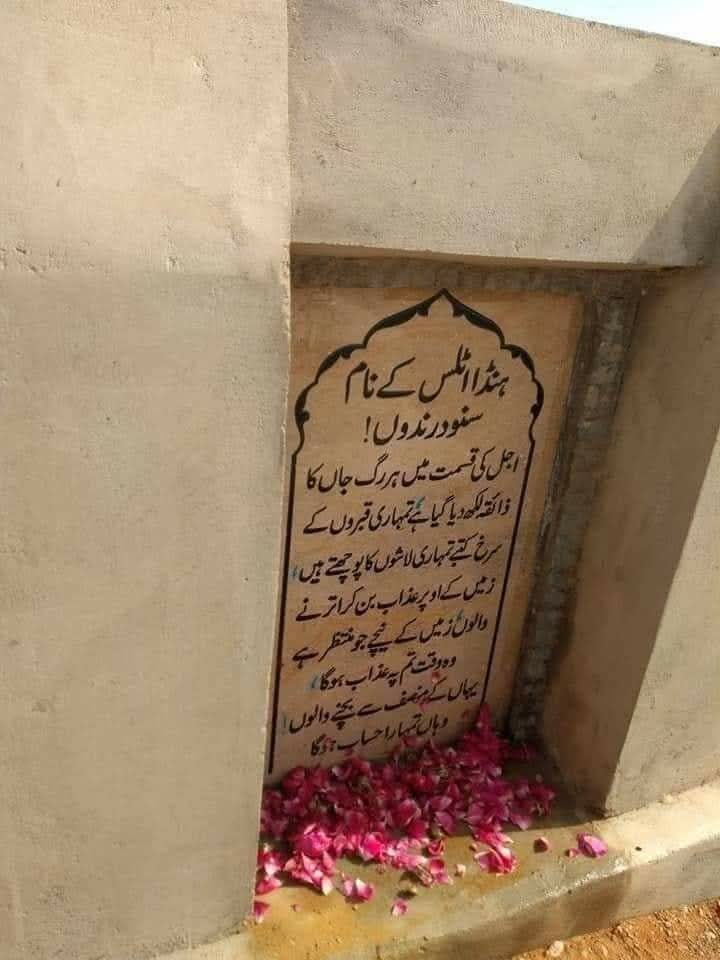 ہنڈا اٹلس کے نام
سنو درندوں!
اجل کی قسمت میں ہر رگ جاں کا
ذائقہ لکھ دیا گیا ہے، تمہاری قبروں کے
سرخ کتبے تمہاری لاشوں کا پوچھتے ہیں،
زمیں کے اوپر عذاب بن کر اترنے
والوں، زمیں کے نیچے جو منتظر ہے
وہ وقت تم پہ عذاب ہوگا،
یہاں کے منصف سے بچنے والوں!
وہاں تمہارا حساب ہوگا